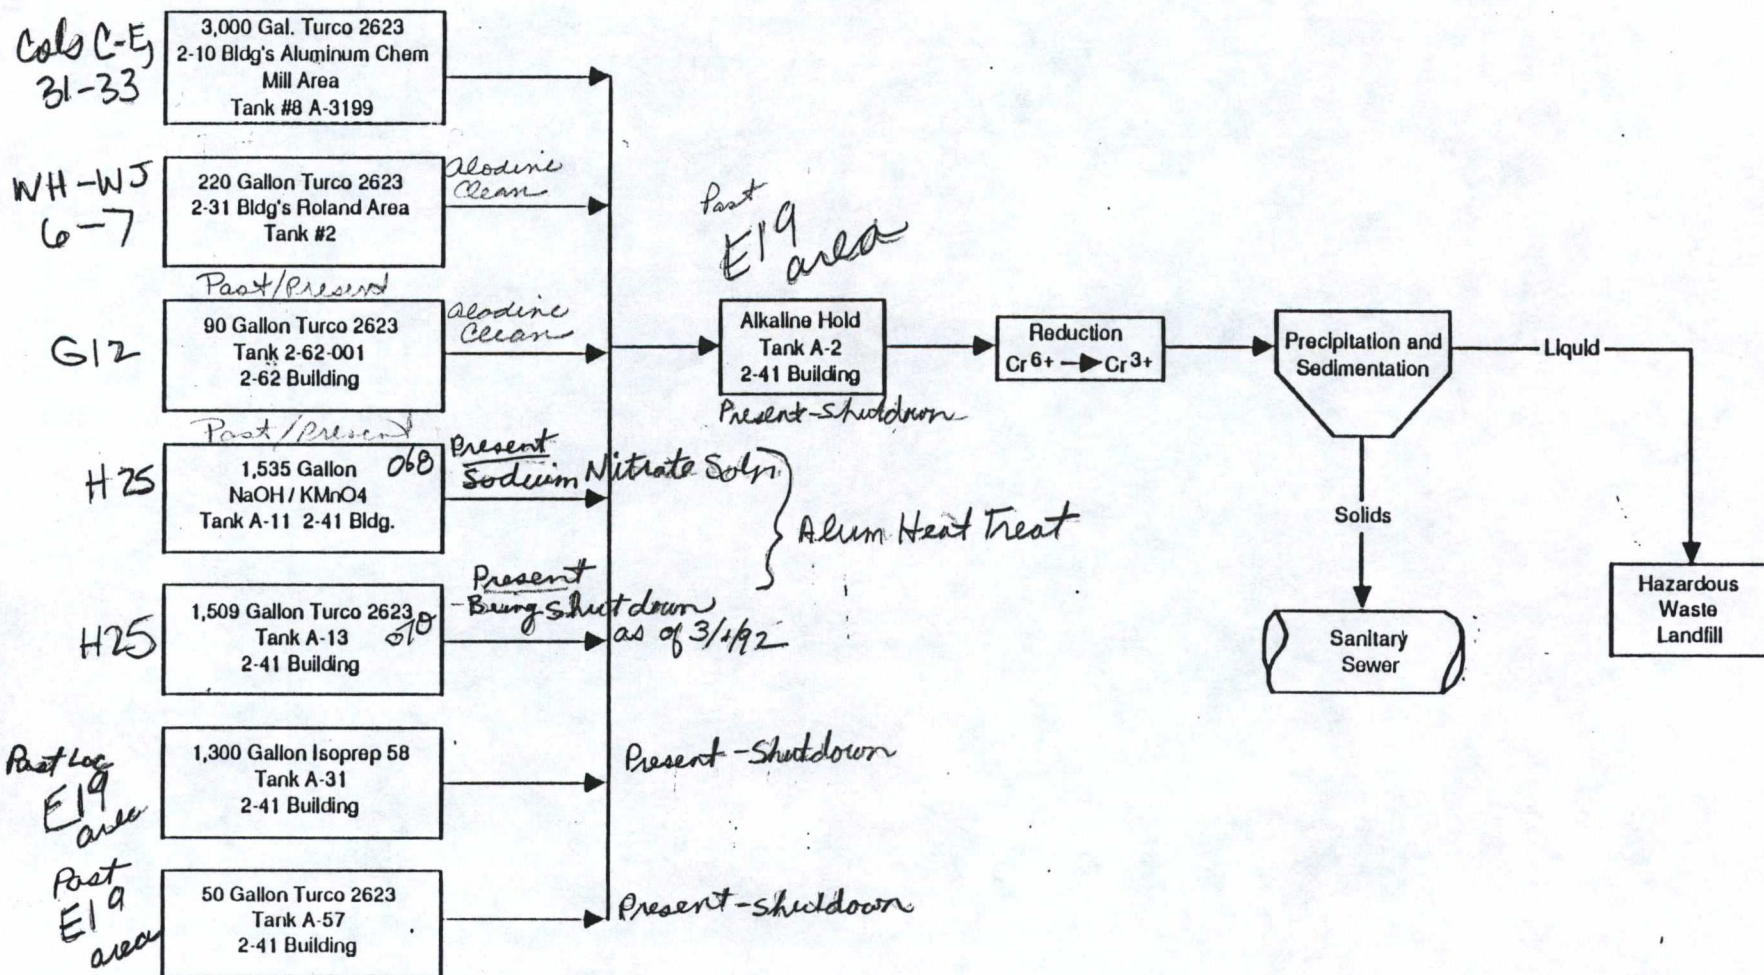 Cols C-E,
31-33
3,000 Gal. Turco 2623
2-10 Bldg's Aluminum Chem
Mill Area
Tank #8 A-3199
WH-WJ
6-7
220 Gallon Turco 2623
2-31 Bldg's Roland Area
Tank #2
Alodine
Clean
Past/Present
G12
90 Gallon Turco 2623
Tank 2-62-001
2-62 Building
Alodine
Clean
Past/Present
H25
1,535 Gallon
NaOH / KMnO4
Tank A-11 2-41 Bldg.
068
Present
Sodium Nitrate Soln.
Alum Heat Treat
H25
1,509 Gallon Turco 2623
Tank A-13
2-41 Building
070
Present
Being Shutdown
as of 3/1/92
Past Loc
E19
area
1,300 Gallon Isoprep 58
Tank A-31
2-41 Building
Present-Shutdown
Past
E19
area
50 Gallon Turco 2623
Tank A-57
2-41 Building
Present-Shutdown
Past
E19
area
Alkaline Hold
Tank A-2
2-41 Building
Present-Shutdown
Reduction
Cr 6+ → Cr 3+
Precipitation and
Sedimentation
Liquid
Solids
Sanitary
Sewer
Hazardous
Waste
Landfill